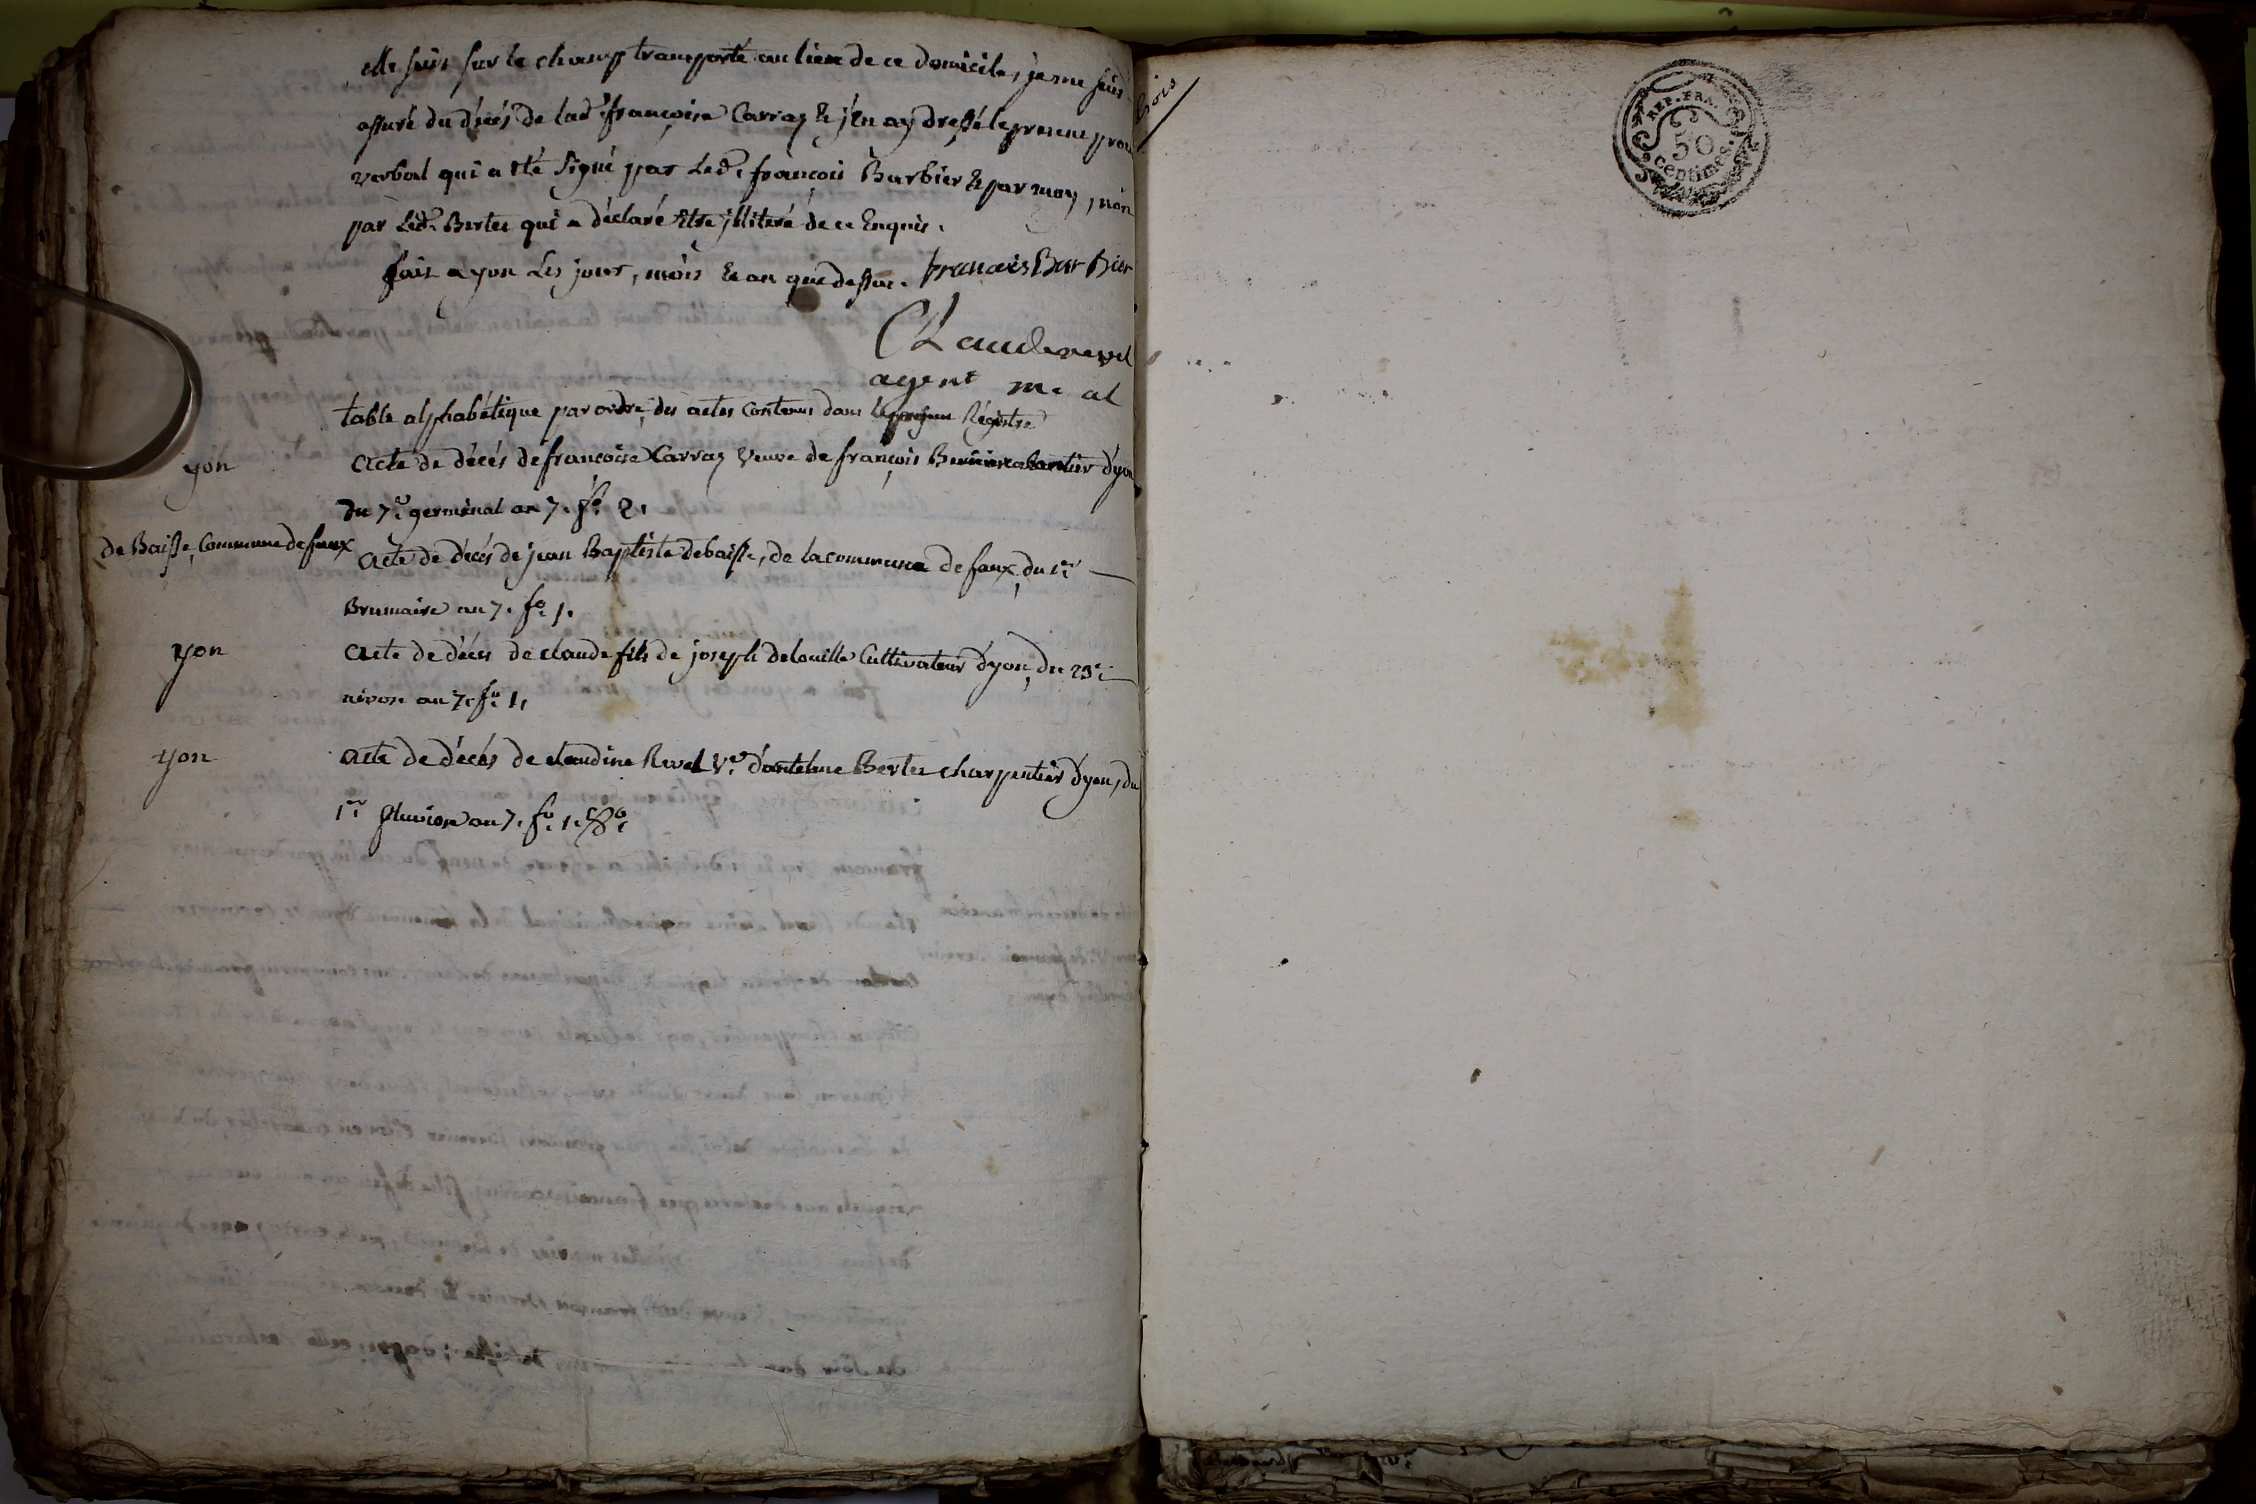 me suis sur le champ transporté au lieu de ce domicile, je me suis
assuré du décès de lade françoise Carraz & j'en ay dressé le present procè
verbal qui a été signé par led. françois Barbier & par moy, non
par led. Bertet qui a déclaré être jlliteré de ce Enquis.
fait a yon Les jours, mois & an que dessus. francois Bar Bier
Claude revel
agent m. al
table alphabétique par ordre, des actes contenus dans le present Régistre
yon
acte de décés de francoise Carraz veuve de françois d'yon
du 7.e germinal an 7. fo. 2.
de Baisse, Commune de faux
acte de décés de jean Baptiste debaisse, de la commune de faux, du 1.er
Brumaire an 7. fo. 1.
yon
acte de décés de claude fils de joseph delouille Cultivateur d'yon, du 23.e
nivose an 7. fo. 1.
yon
acte de décés de claudine Revel Ve. d'antelme Bertet charpentier d'yon, du
1.er pluviose an 7. fo. 1. Vo.
REP. FRA.
50
centimes.